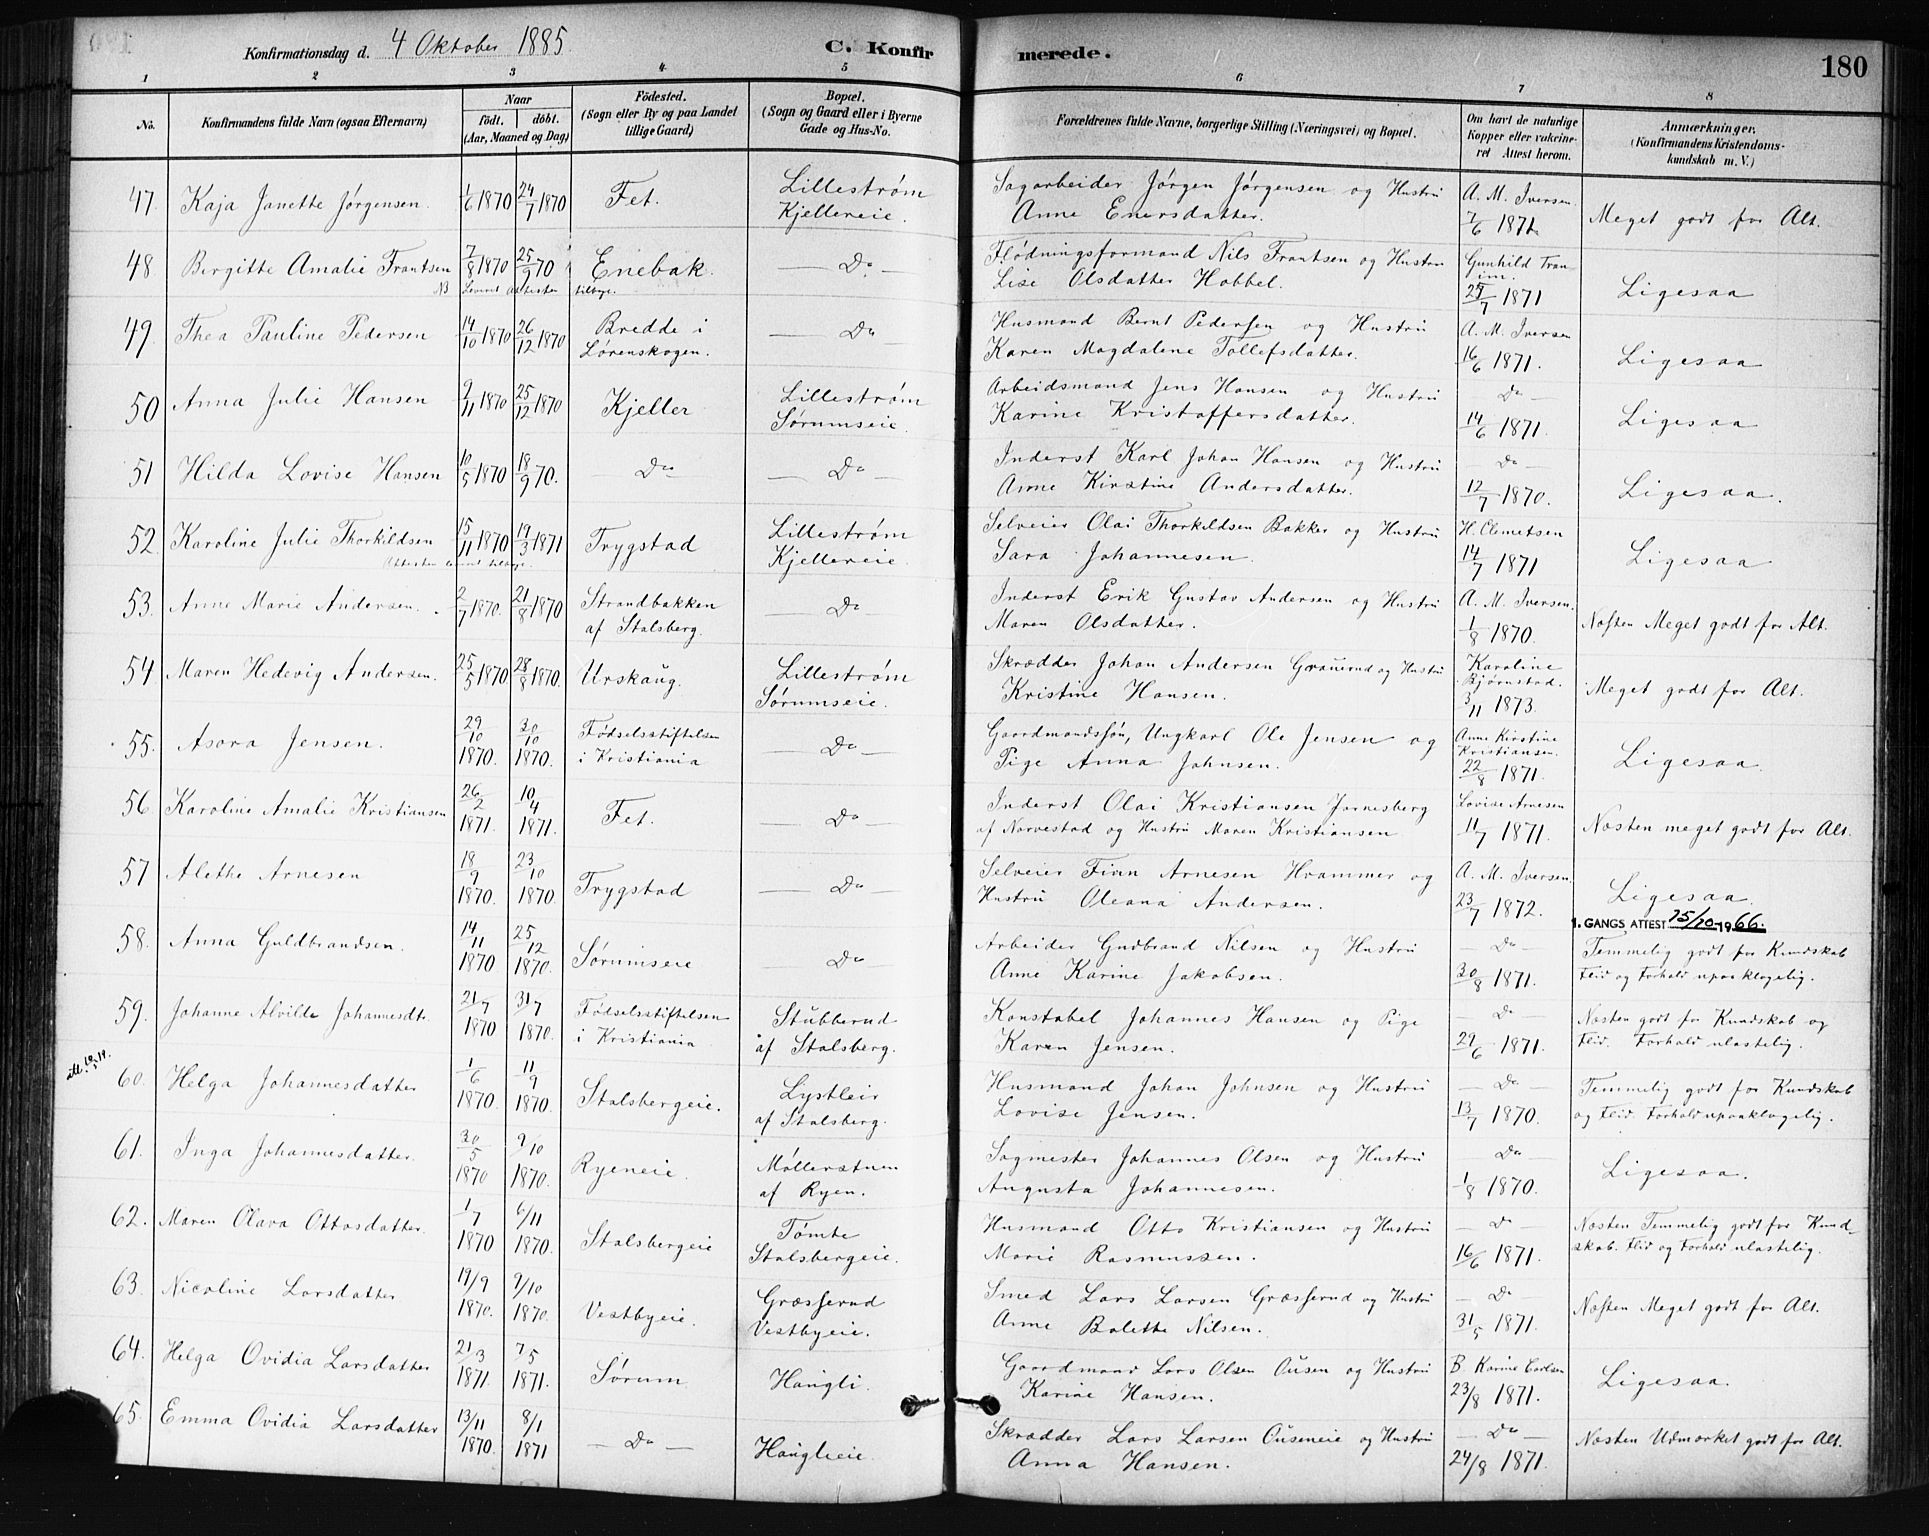 Konfirmationsdag d. 4 Oktober 1885. C. Konfirmerede. 180
1 2 3 4 5 6 7 8
No. Konfirmandens fulde Navn (ogsaa Efternavn) Naar födt. döbt. (Aar, Maaned og Dag) Födested. (Sogn eller By og paa Landet tillige Gaard) Bopæl. (Sogn og Gaard eller i Byerne Gade og Hus-No. Forældrenes fulde Navne, borgerlige Stilling (Næringsvei) og Bopæl. Om havt de naturlige Kopper eller vakcineret Attest herom. Anmærkninger. (Konfirmandens Kristendomskundskab m. V.)
47. Kaja Janette Jørgensen. 1/6 1870 24/7 1870 Fet. Lillestrøm Kjellereie. Sagarbeider Jørgen Jørgensen og Hustru Anne Enersdatter. A. M. Iversen. 7/6 1871. Meget godt for Alt.
48 Birgitte Amalie Frantsen 7/8 1870 25/9 70 Enebak. — Do — Flødningsformand Nils Frantsen og Hustru Lise Olsdatter Hobbel. Gunhild 25/7 1871 Ligesaa
NB Leveret Attesten tilbage.
49. Thea Pauline Pedersen 14/10 1870 26/12 1870 Bredde i Lørenskogen. — Do Husmand Bernt Pedersen og Hustru Karen Magdalene Tollefsdatter. A. M. Iversen 16/6 1871. Ligesaa
50 Anna Julie Hansen 9/11 1870 25/12 1870 Kjeller Lillestrøm Sørumseie. Arbeidsmand Jens Hansen og Hustru Karine Kristoffersdatter. Do 14/6 1871. Ligesaa
51 Hilda Lovise Hansen 10/5 1870 18/9 70. — Do — — Do — Inderst Karl Johan Hansen og Hustru Anne Kirstine Andersdatter. — Do — 12/7 1870. Ligesaa.
52. Karoline Julie Thorkildsen 15/11 1870 19/3 1871 Trygstad Lillestrøm Kjellereie. Selveier Olai Thorkildsen Bakker og Hustru Sara Johannesen. H. Clemetsen 14/7 1871 Ligesaa
Attesten leveret tilbage.
53. Anne Marie Andersen. 2/7 1870. 21/8 1870 Strandbakken af Stalsberg. — Do — Inderst Erik Gustav Andersen og Hustru Maren Olsdatter. A. M. Iversen. 1/8 1870. Næsten Meget godt for Alt.
54 Maren Hedevig Andersen. 25/5 1870 28/8 1870. Urskaug. Lillestrøm Sørumseie. Skrædder Johan Andersen Grauerud og Hustru Kristine Hansen. Karoline Bjørnstad. 3/11 1873. Meget godt for Alt.
55. Asora Jensen. 29/10 1870. 30/10 1870. Fødselsstiftelsen i Kristiania — Do — Gaardmandssøn, Ungkarl Ole Jensen og Pige Anna Johnsen. Anne Kirstine Kristiansen. 22/8 1871. Ligesaa.
56 Karoline Amalie Kristiansen 26/2 1871. 10/4 1871. Fet. — Do — Inderst Olai Kristiansen Jarnesberg af Narvestad og Hustru Maren Kristiansen Lovise Arnesen 11/7 1871. Næsten meget godt for Alt.
57 Alethe Arnesen 18/9 1870. 23/10 1870. Trygstad — Do — Selveier Finn Arnesen Hvammer og Hustru Oleana Andersen. A. M. Iversen. 23/7 1872. Ligesaa.
1. GANGS ATTEST 15/10 1966.
58. Anna Guldbrandsen. 14/11 1870 25/12 1870. Sørumseie — Do — Arbeider Gudbrand Nilsen og Hustru Anne Karine Jakobsen. — Do — 30/8 1871. Temmelig godt for Kundskab Flid og Forhold upaaklagelig.
59. Johanne Alvilde Johannesdt. 21/7 1870 31/7 1870. Fødselsstiftelsen i Kristiania Stubberud af Stalsberg. Konstabel Johannes Hansen og Pige Karen Jensen. — Do — 29/6 1871. Næsten godt for Kundskab og Flid. Forhold ulastelig.
60. Helga Johannesdatter 1/6 1870. 11/9 1870. Stalsbergeie. Lystleir af Stalsberg. Husmand Johan Johnsen og Hustru Lovise Jensen. — Do — 13/7 1870. Temmelig godt for Kundskab og Flid. Forhold upaaklagelig.
61. Inga Johannesdatter. 30/5 1870 9/10 1870. Ryeneie. Møllerstuen af Ryen. Sagmester Johannes Olsen og Hustru Augusta Johannesen. — Do — 1/8 1870. Ligesaa.
62. Maren Olava Ottosdatter. 1/7 1870 6/11 1870. Stalsbergeie Tømte Stalsbergeie. Husmand Otto Kristiansen og Hustru Marie Rasmussen. — Do — 16/6 1871. Næsten Temmelig godt for Kundskab. Flid og Forhold ulastelig.
63. Nicoline Larsdatter 19/9 1870. 9/10 1870. Vestbyeie. Græsserud Vestbyeie. Smed Lars Larsen Græsserud og Hustru Anne Bolette Nilsen. — Do — 31/5 1871. Næsten Meget godt for Alt.
64. Helga Ovidia Larsdatter 21/3 1871. 7/5 1871. Sørum Haugli. Gaardmand Lars Olsen Ousen og Hustru Karine Hansen. B Karine Carlsen 23/8 1871. Ligesaa.
65. Emma Ovidia Larsdatter 13/11 1870. 8/1 1871 — Do — Hauglieie. Skrædder Lars Larsen Ouseneie og Hustru Anna Hansen. — Do — 24/8 1871. Næsten Udmærket godt for Alt.